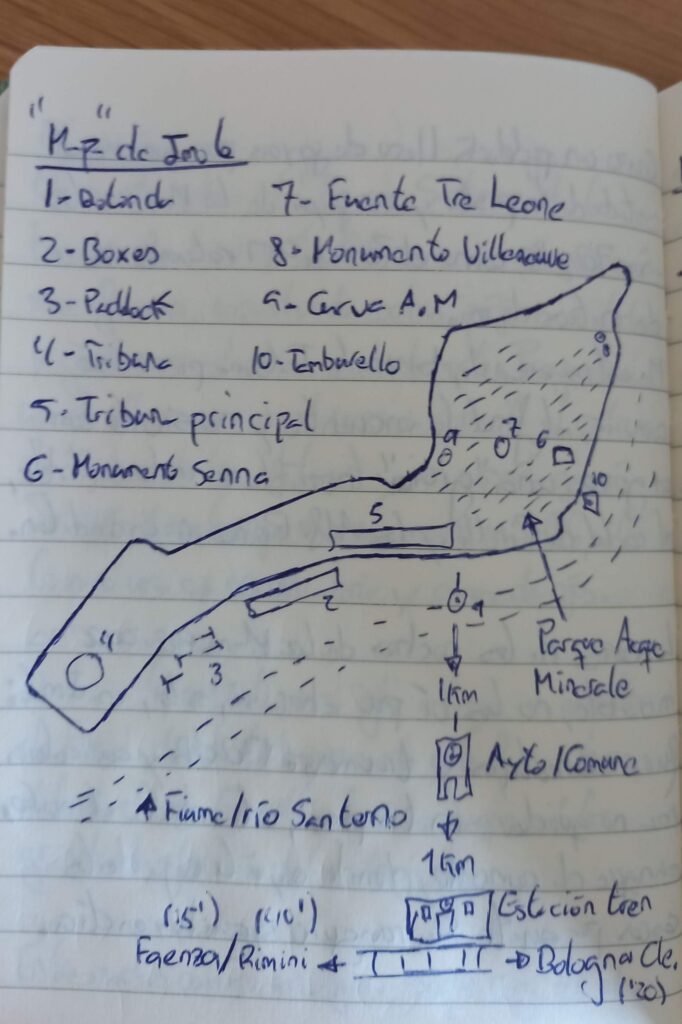 "Map" de Imola
1- Rotonda
7- Fuente Tre Leone
2- Boxes
8- Monumento Villeneuve
3- Paddock
9- Curva A.M
4- Tribuna
10- Tamburello
5- Tribuna principal
6- Monumento Senna
8
9
7
6
10
5
2
1
4
3
Parque Acque
Minerale
1Km
Ayto/Comune
Fiume/río Santerno
1Km
Estación tren
(15') (40')
Faenza/Rimini
Bologna Cle.
('20)